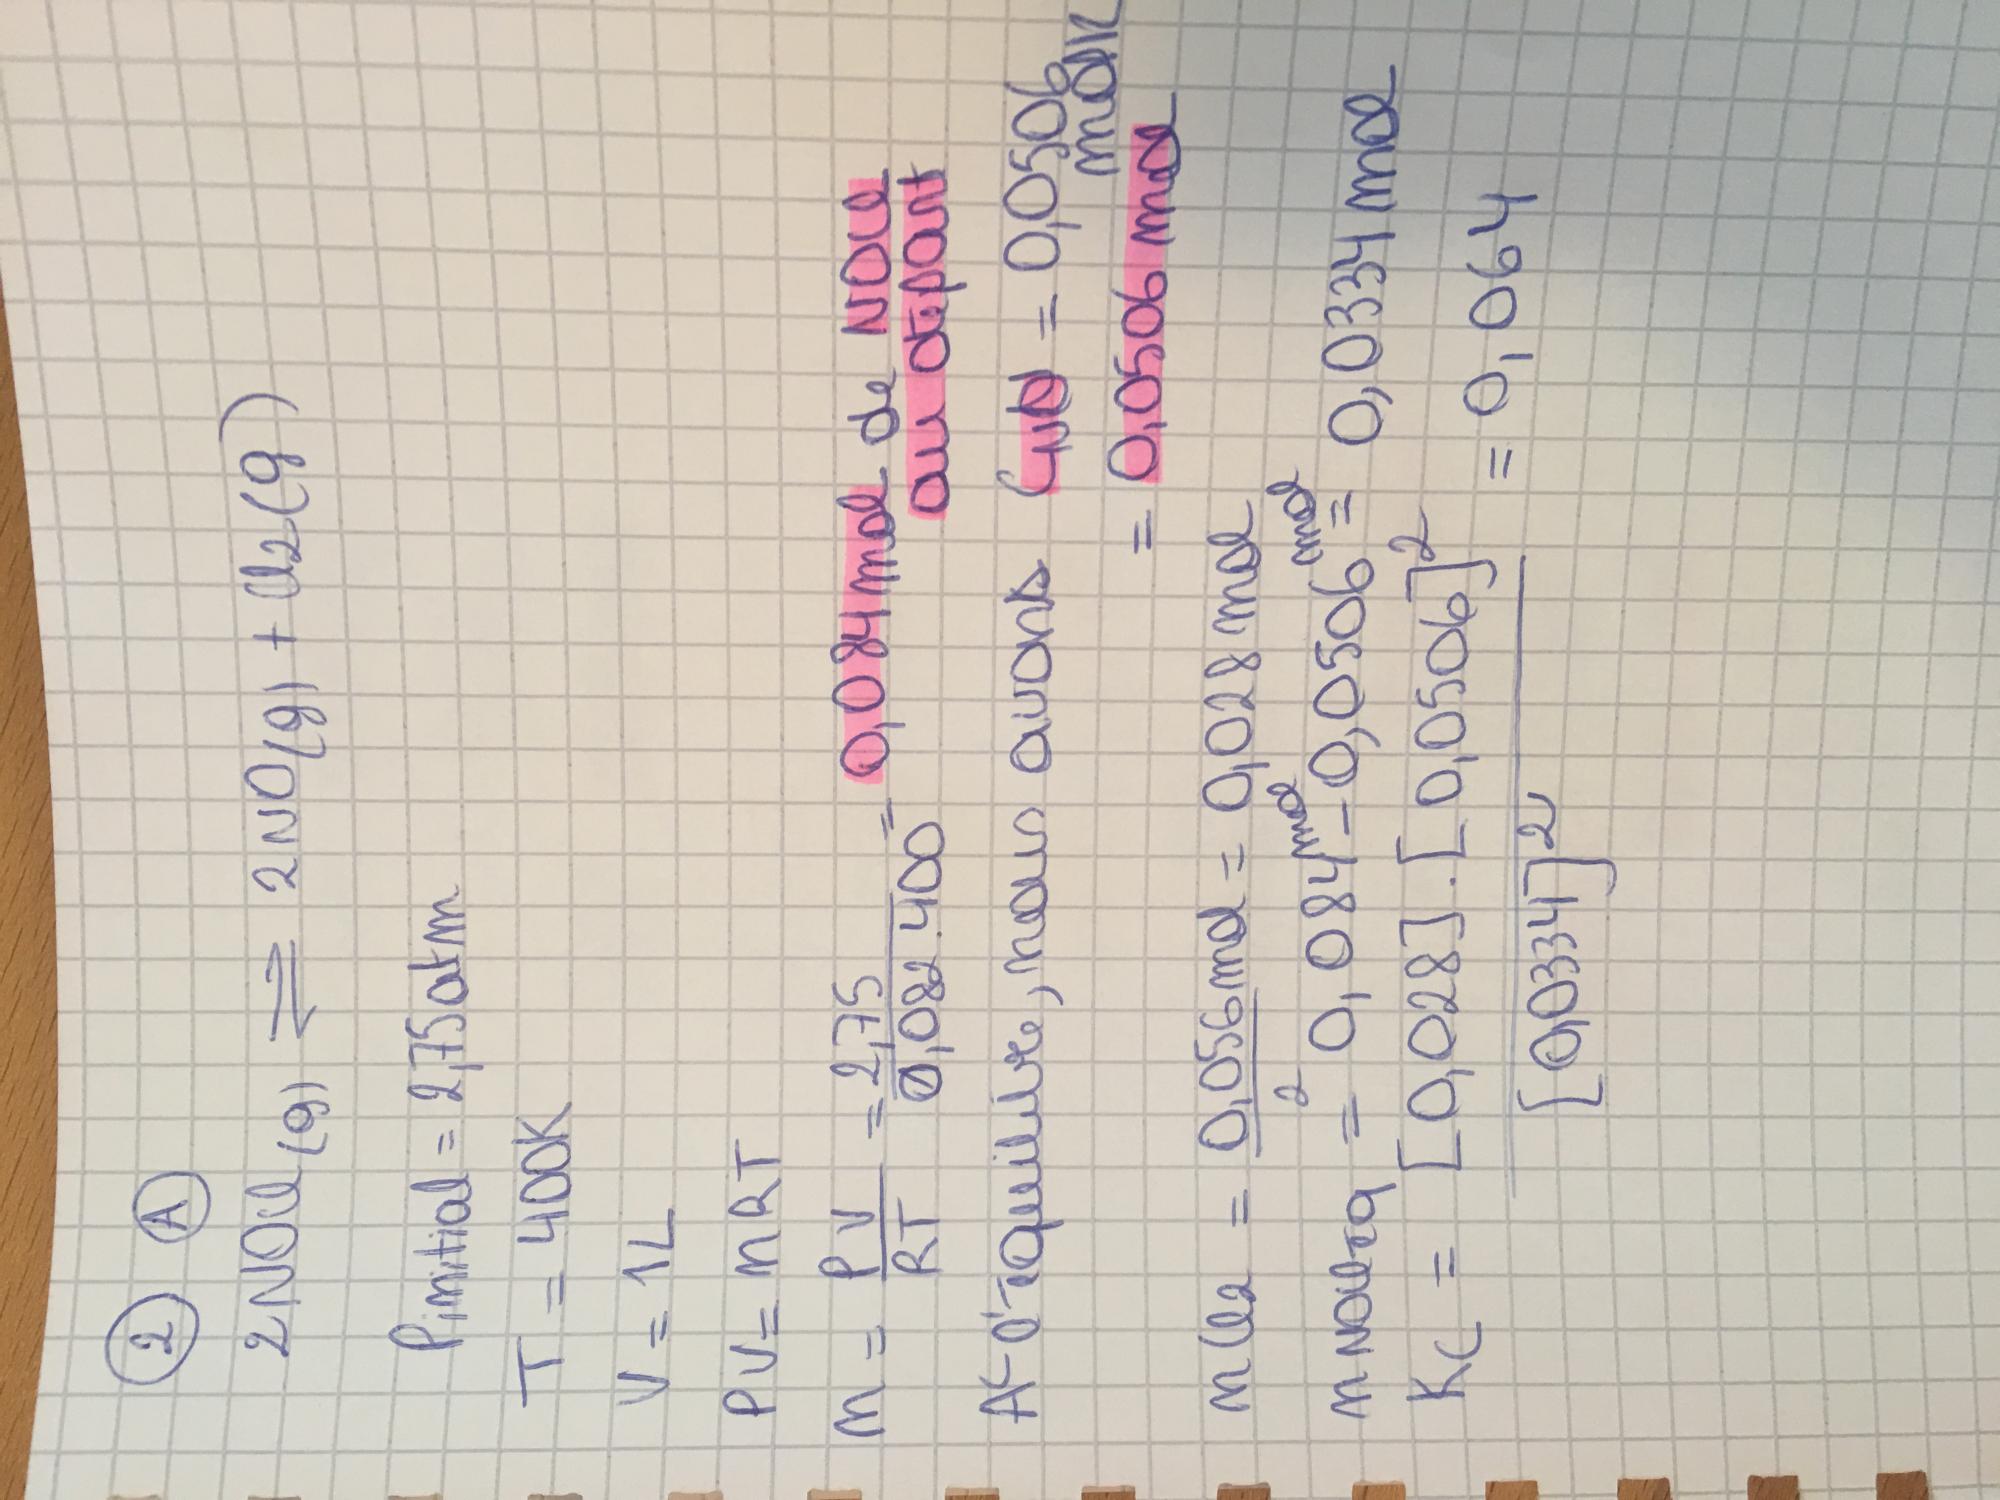 2 A
2NOCl(g) ⇌ 2NO(g) + Cl2(g)
Pinitial = 2,75atm
T = 400K
V = 1L
PV = nRT
n = PV/RT = 2,75/0,082.400 = 0,084mol de NOCl
au départ
A l'équilibre, nous avons CNO = 0,0506
mol/L
= 0,0506 mol
nCl2 = 0,056mol/2 = 0,028 mol
nNOCleq = 0,084mol - 0,0506mol = 0,0334 mol
Kc = [0,028].[0,0506]²/[0,0334]² = 0,064